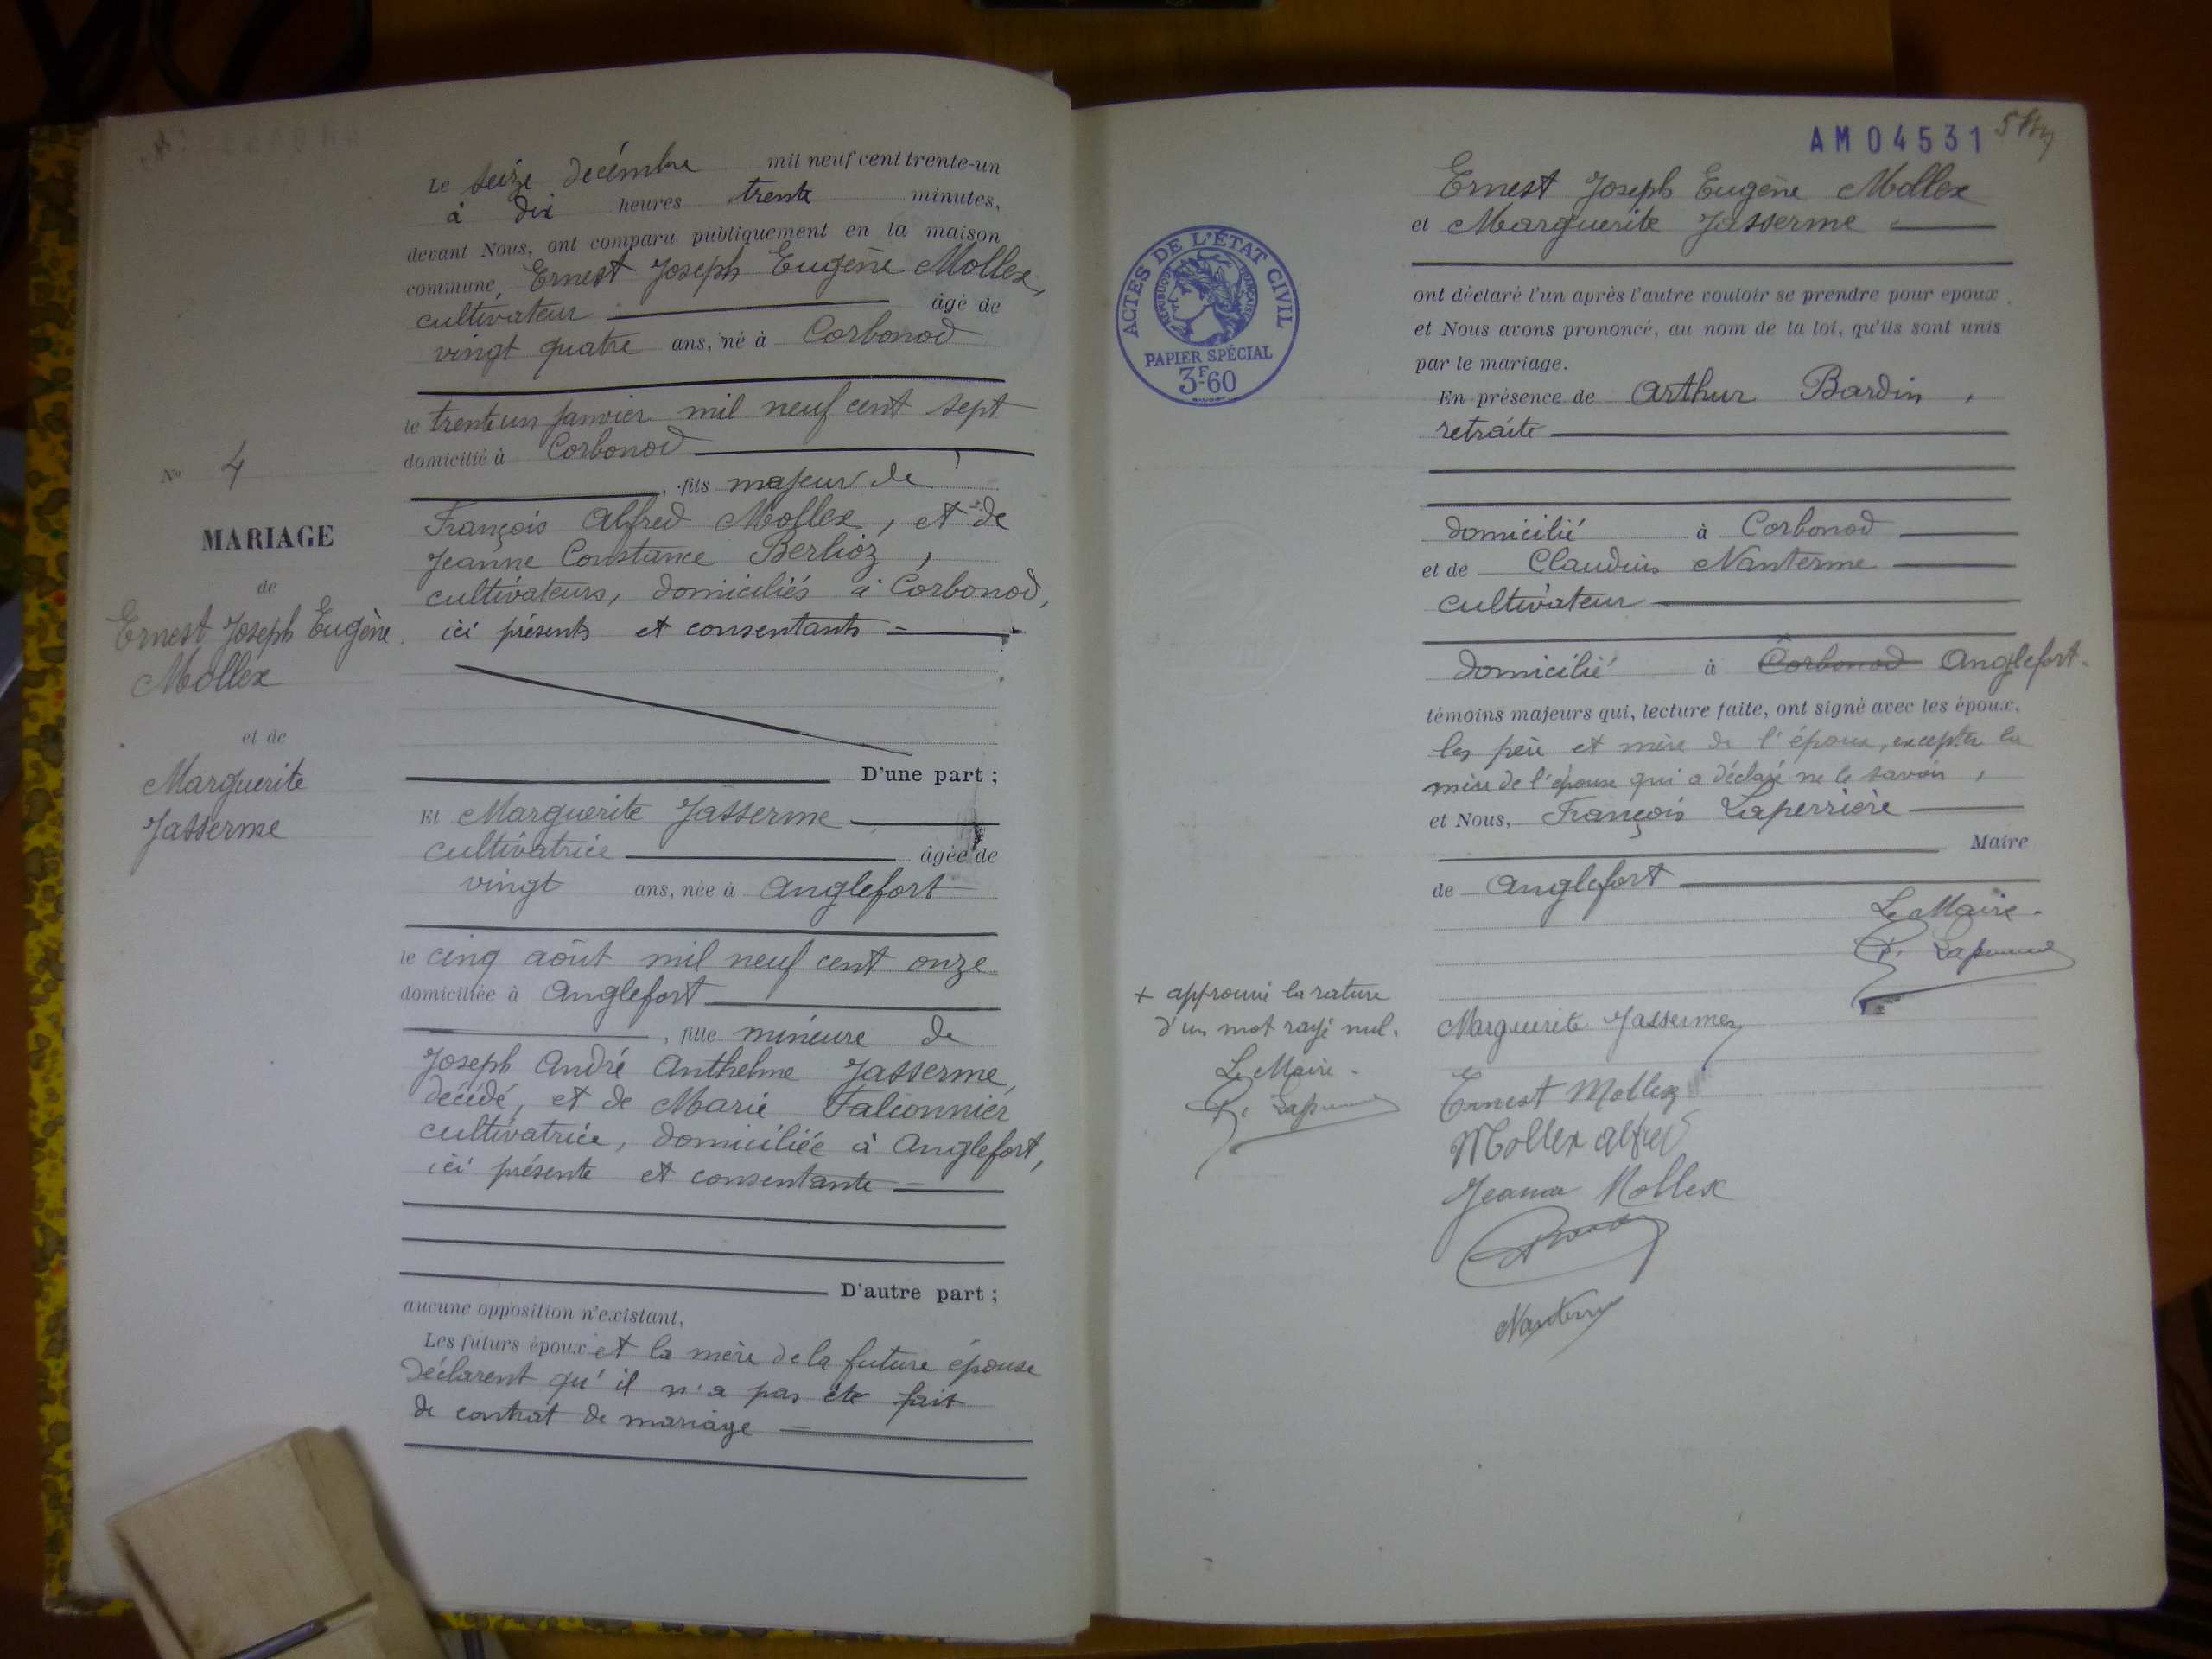 N° 4
MARIAGE
de
Ernest Joseph Eugène
Mollex
et de
Marguerite
Jasserme
Le seize décembre mil neuf cent trente-un
à dix heures trente minutes,
devant Nous, ont comparu publiquement en la maison
commune, Ernest Joseph Eugène Mollex,
cultivateur âgé de
vingt quatre ans, né à Corbonod
le trente un janvier mil neuf cent sept
domicilié à Corbonod
, fils majeur de
François Alfred Mollex, et de
Jeanne Constance Berlioz,
cultivateurs, domiciliés à Corbonod,
ici présents et consentants
D'une part ;
Et Marguerite Jasserme
cultivatrice âgée de
vingt ans, née à Anglefort
le cinq août mil neuf cent onze
domiciliée à Anglefort
, fille mineure de
Joseph André Anthelme Jasserme,
décédé, et de Marie Falconnier
cultivatrice, domiciliée à Anglefort,
ici présente et consentante
D'autre part ;
aucune opposition n'existant,
Les futurs époux et la mère de la future épouse
déclarent qu'il n'a pas été fait
de contrat de mariage
AM04531
ACTES DE L'ÉTAT CIVIL
RÉPUBLIQUE FRANÇAISE
PAPIER SPÉCIAL
3F-60
Ernest Joseph Eugène Mollex
et Marguerite Jasserme
ont déclaré l'un après l'autre vouloir se prendre pour époux
et Nous avons prononcé, au nom de la loi, qu'ils sont unis
par le mariage.
En présence de Arthur Bardin,
retraité
domicilié à Corbonod
et de Claudius Nanterme
cultivateur
domicilié à Corbonod Anglefort.
témoins majeurs qui, lecture faite, ont signé avec les époux,
les père et mère de l'époux, excepté la
mère de l'épouse qui a déclaré ne le savoir,
et Nous, François Laperrière
Maire
de Anglefort
Le Maire.
+ approuvé la rature
d'un mot rayé nul.
Le Maire.
Marguerite Jasserme
Ernest Mollex
Mollex alfred
Jeanne Mollex
Nanterme